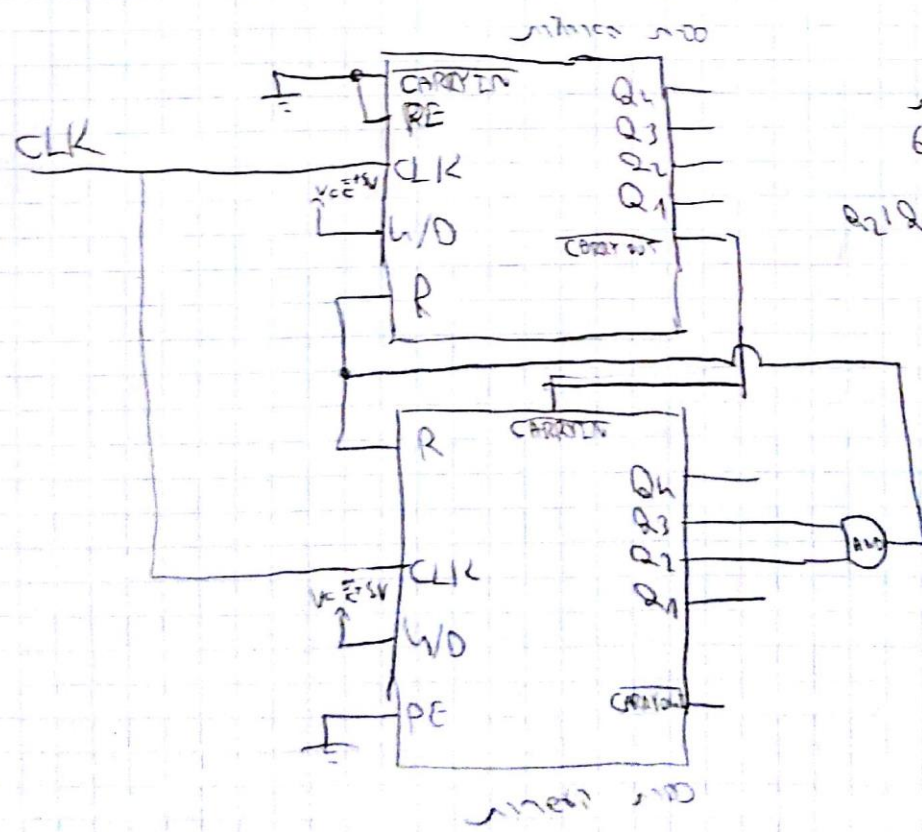 CARRYIN
PE
CLK
CLK
VCC=+5V
U/D
R
Q4
Q3
Q2
Q1
CARRYOUT
CARRYIN
R
CLK
VCC=+5V
U/D
PE
Q4
Q3
Q2
Q1
CARRYOUT
AND